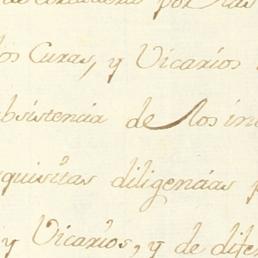 por las
los Curas, y Vicarios
subsistencia de los in
quisitas diligencias p
y Vicarios, y de dife